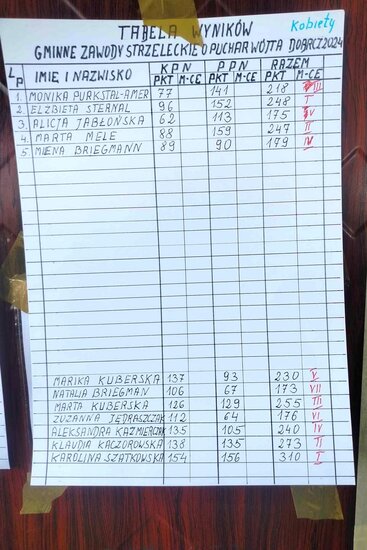 TABELA WYNIKÓW Kobiety
GMINNE ZAWODY STRZELECKIE O PUCHAR WÓJTA DOBRCZ 2024
LP IMIĘ I NAZWISKO KPN PPN RAZEM
PKT M-CE PKT M-CE PKT M-CE
1. MONIKA PURKSTAL-AMER 77 141 218 III
2. ELZBIETA STERNAL 96 152 248 I
3. ALICJA JABŁOŃSKA 62 113 175 V
4. MARTA MELE 88 159 247 II
5. MIENA BRIEGMANN 89 90 179 IV
MARIKA KUBERSKA 137 93 230 V
NATALIA BRIEGMAN 106 67 173 VII
MARTA KUBERSKA 126 129 255 III
ZUZANNA JĘDRASZCZAK 112 64 176 VI
ALEKSANDRA KAŹMIERCZAK 135 105 240 IV
KLAUDIA KACZOROWSKA 138 135 273 II
KAROLINA SZATKOWSKA 154 156 310 I